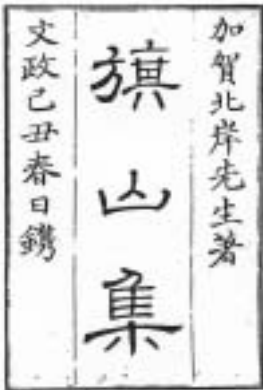 加賀北岸先生著
旗山集
文政己丑春日鐫